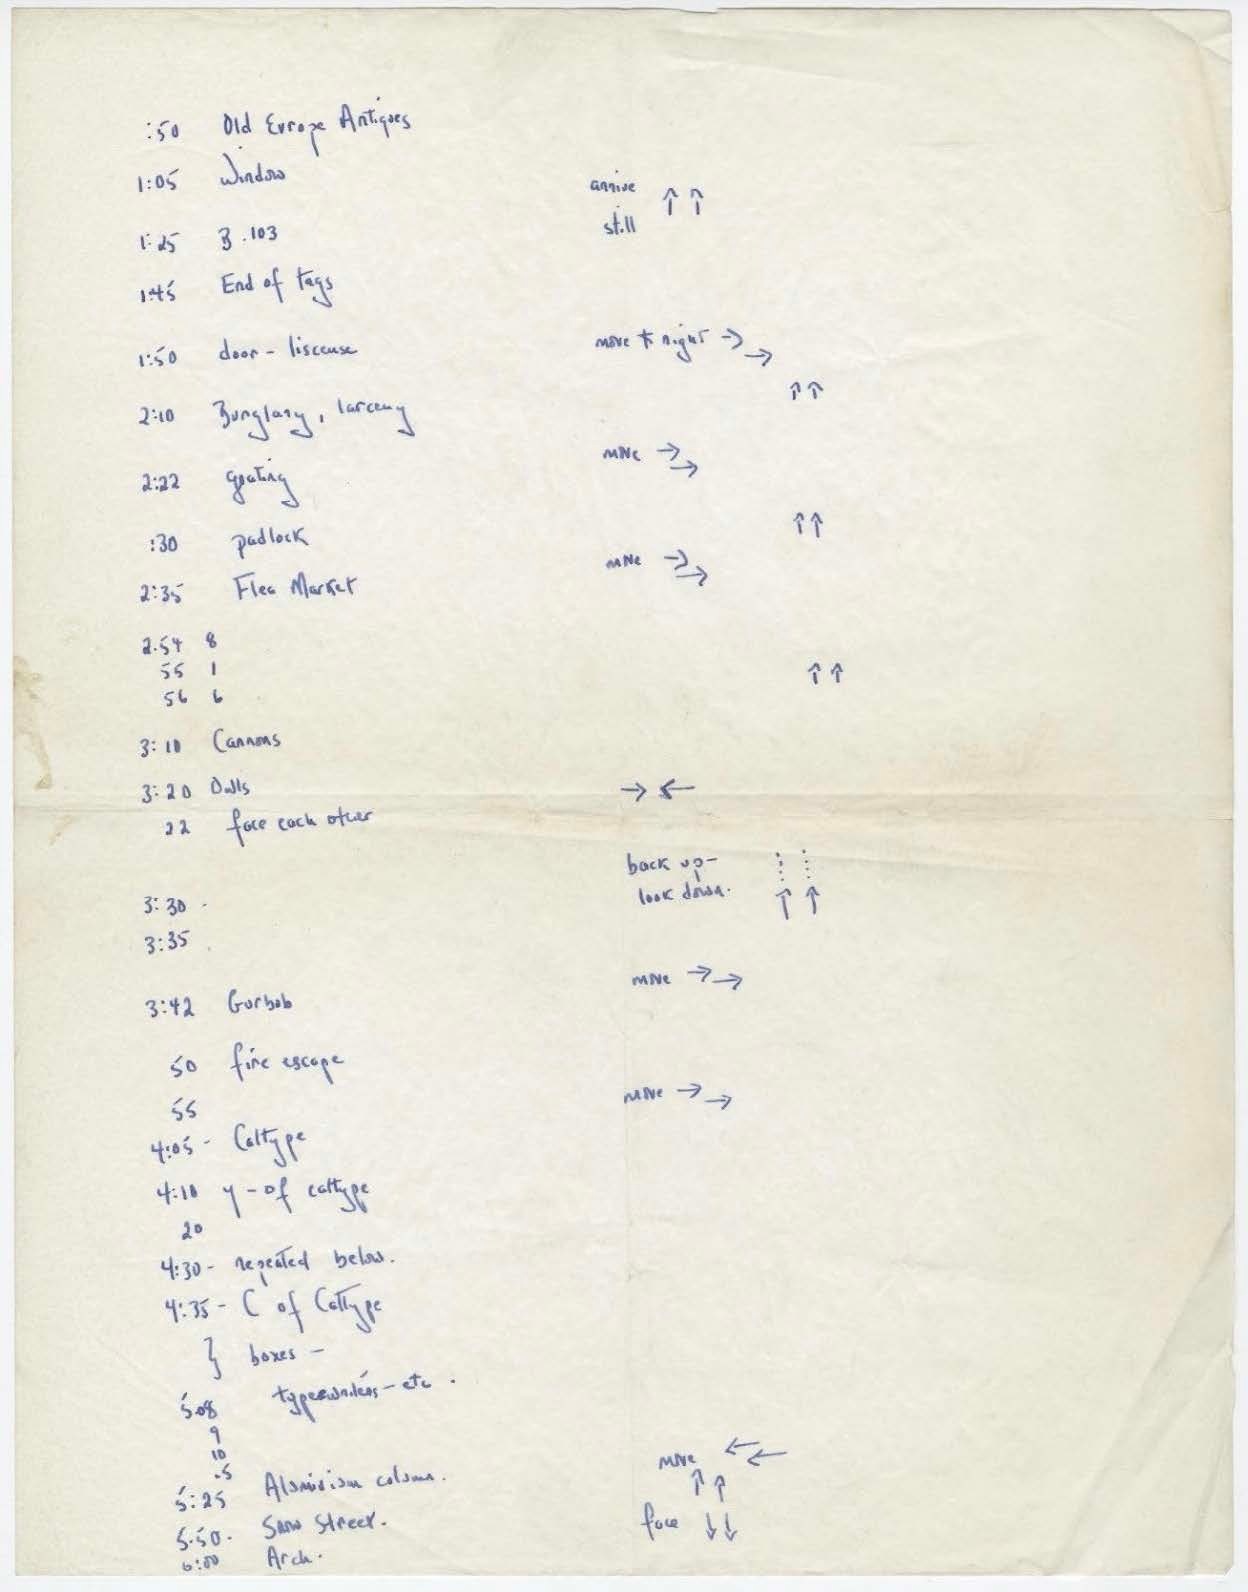 :50 Old Europe Antiques
1:05 Window
arrive ↑ ↑
still
1:25 3.103
1:45 End of tags
1:50 door - liscense
move to right → →
↑ ↑
2:10 Burglary, larceny
move → →
2:22 grating
↑ ↑
:30 padlock
move → →
2:35 Flea Market
2.54 8
55 1
↑ ↑
56 6
3:10 Cannons
3:20 Dolls
→ ←
22 face each other
back up -
look down. ↑ ↑
3:30 -
3:35
move → →
3:42
50 fire escape
move → →
55
4:05 - Caltype
4:10 y - of caltype
20
4:30 - repeated below.
4:35 - C of Caltype
} boxes -
typewriters - etc.
5.08
9
10
move ← ←
.5
↑ ↑
5:25 Aluminium column.
face ↓ ↓
5.50. Snow Street.
6:00 Arch.